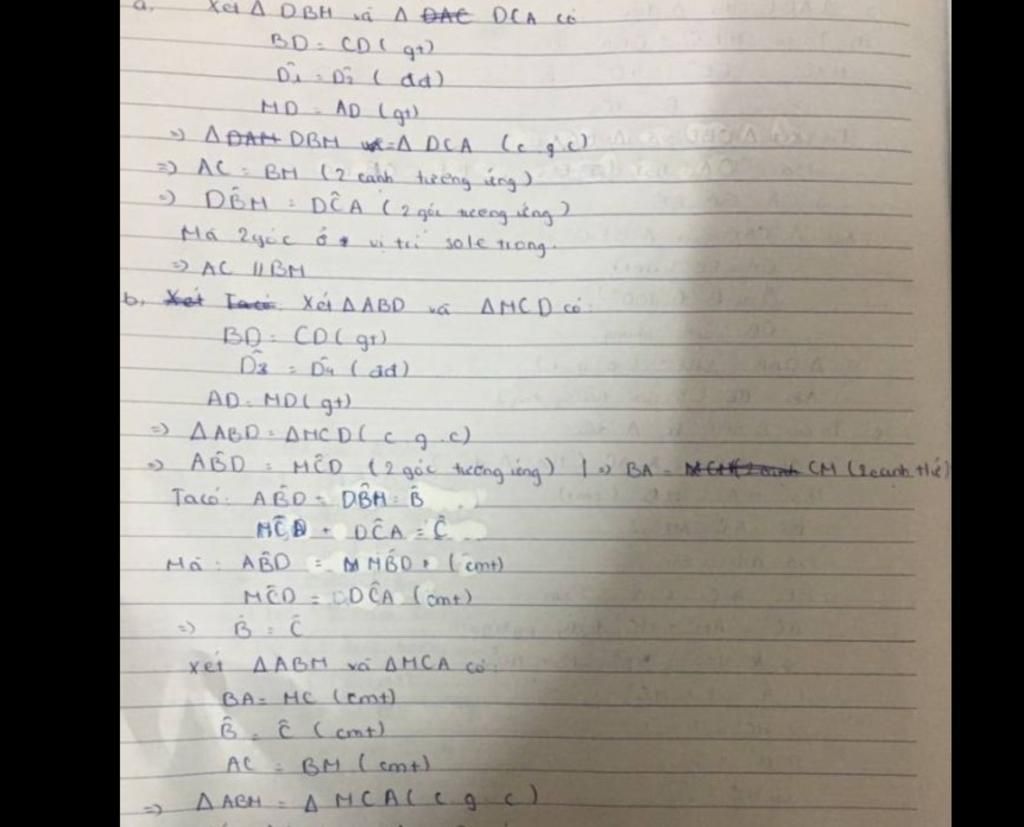 a. Xét Δ DBM và Δ DAC DCA có
BD = CD ( gt)
D̂1 = D̂2 ( đđ)
MD = AD (gt)
=> Δ DAM DBM = Δ DCA (c g c)
=> AC = BM (2 cạnh tương ứng)
=> DB̂M = DĈA (2 góc tương ứng)
Mà 2 góc ở vị trí sole trong.
=> AC // BM
b, Xét Ta có: Xét ΔABD và ΔMCD có:
BD = CD ( gt)
D̂3 = D̂4 ( đđ)
AD = MD ( gt)
=> ΔABD = ΔMCD ( c g .c)
=> AB̂D = MĈD (2 góc tương ứng) | => BA = CM (2 cạnh t/ứ)
Ta có: AB̂D + DB̂M = B̂
MĈD + DĈA = Ĉ
Mà: AB̂D = MB̂D . (cmt)
MĈD = DĈA (cmt)
=> B̂ = Ĉ
Xét ΔABM và ΔMCA có:
BA = MC (cmt)
B̂ = Ĉ (cmt)
AC = BM (cmt)
=> ΔABM = Δ MCA ( c g c )